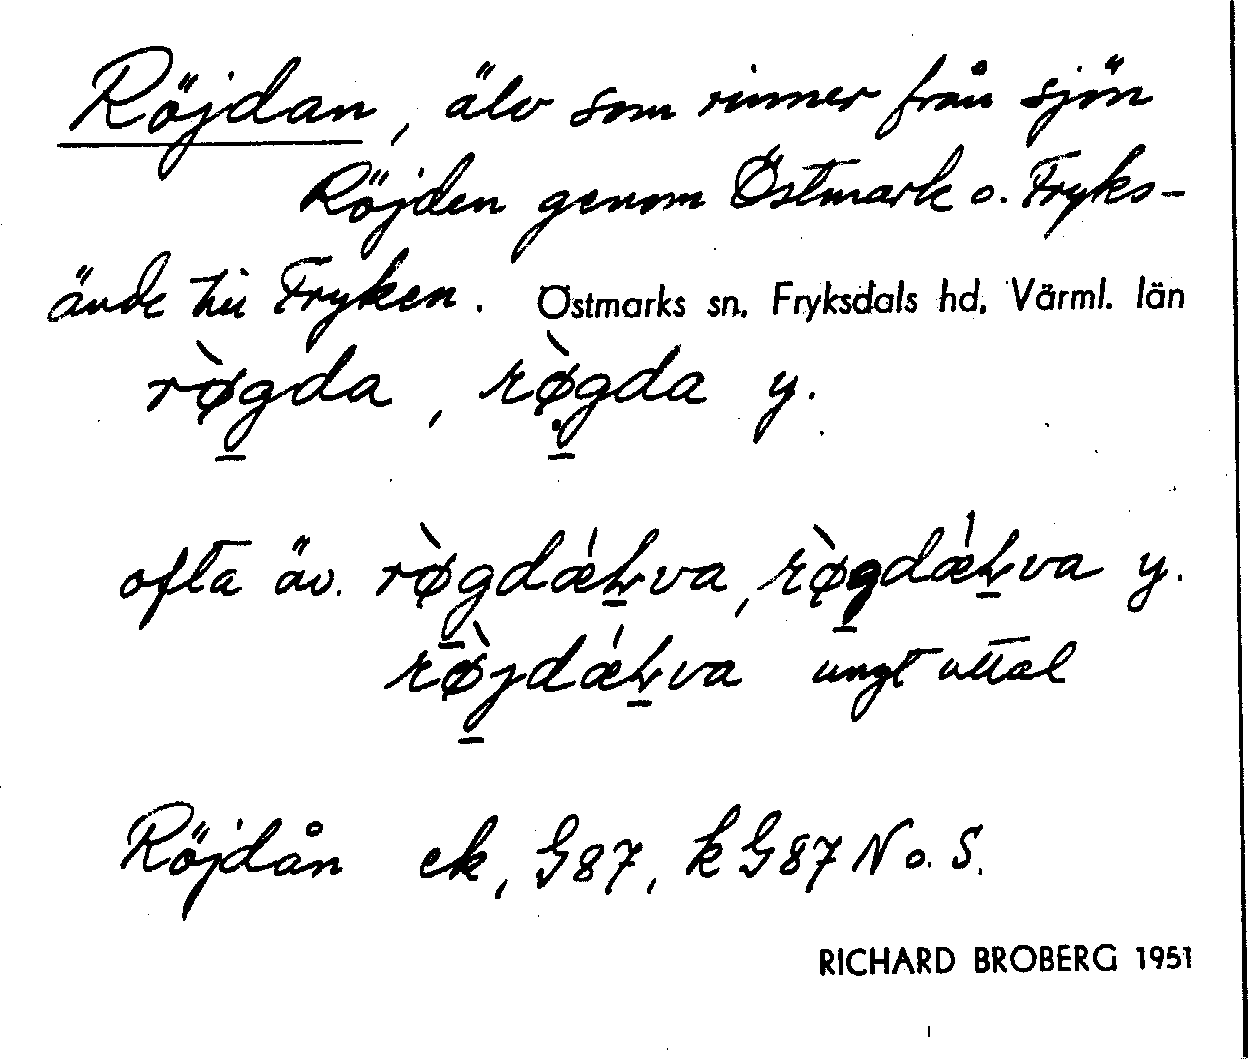 Röjdan, älv som rinner från sjön
Röjden genom Östmark o. Fryks-
ände till Fryken. Östmarks sn. Fryksdals hd. Värml. län
rø̀gda, rø̀gda y.
ofta äv. rø̀gdǽƚva, rø̀gdǽƚva y.
rø̀jdǽƚva ungt uttal
Röjdån ek, G87, kG87 N o. S.
RICHARD BROBERG 1951